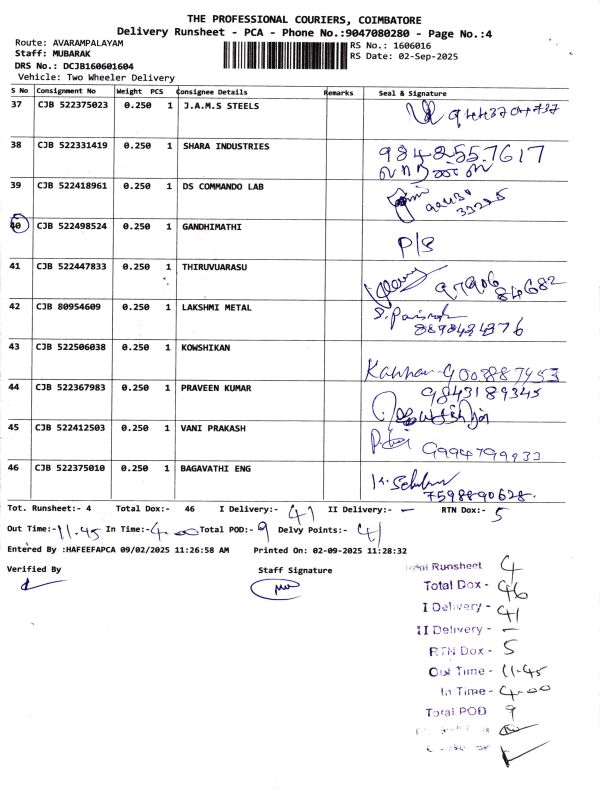 THE PROFESSIONAL COURIERS, COIMBATORE
Delivery Runsheet - PCA - Phone No.:9047080280 - Page No.:4
Route: AVARAMPALAYAM
Staff: MUBARAK
DRS No.: DCJB160601604
Vehicle: Two Wheeler Delivery
RS No.: 1606016
RS Date: 02-Sep-2025
S No Consignment No Weight PCS Consignee Details Remarks Seal & Signature
37 CJB 522375023 0.250 1 J.A.M.S STEELS
38 CJB 522331419 0.250 1 SHARA INDUSTRIES 984-255.7617
39 CJB 522418961 0.250 1 DS COMMANDO LAB
40 CJB 522498524 0.250 1 GANDHIMATHI P/S
41 CJB 522447833 0.250 1 THIRUVUARASU 97906 84682
42 CJB 80954609 0.250 1 LAKSHMI METAL
43 CJB 522506038 0.250 1 KOWSHIKAN
44 CJB 522367983 0.250 1 PRAVEEN KUMAR 9843189345
45 CJB 522412503 0.250 1 VANI PRAKASH
46 CJB 522375010 0.250 1 BAGAVATHI ENG 7598890628
Tot. Runsheet:- 4 Total Dox:- 46 I Delivery:- 41 II Delivery:- - RTN Dox:- 5
Out Time:- 11.45 In Time:- 4.00 Total POD:- 9 Delvy Points:- 41
Entered By :HAFEEFAPCA 09/02/2025 11:26:58 AM Printed On: 02-09-2025 11:28:32
Verified By Staff Signature
Total Runsheet 4
Total Dox - 46
I Delivery - 41
II Delivery - -
RTN Dox - 5
Out Time - 11.45
In Time - 4.00
Total POD 9